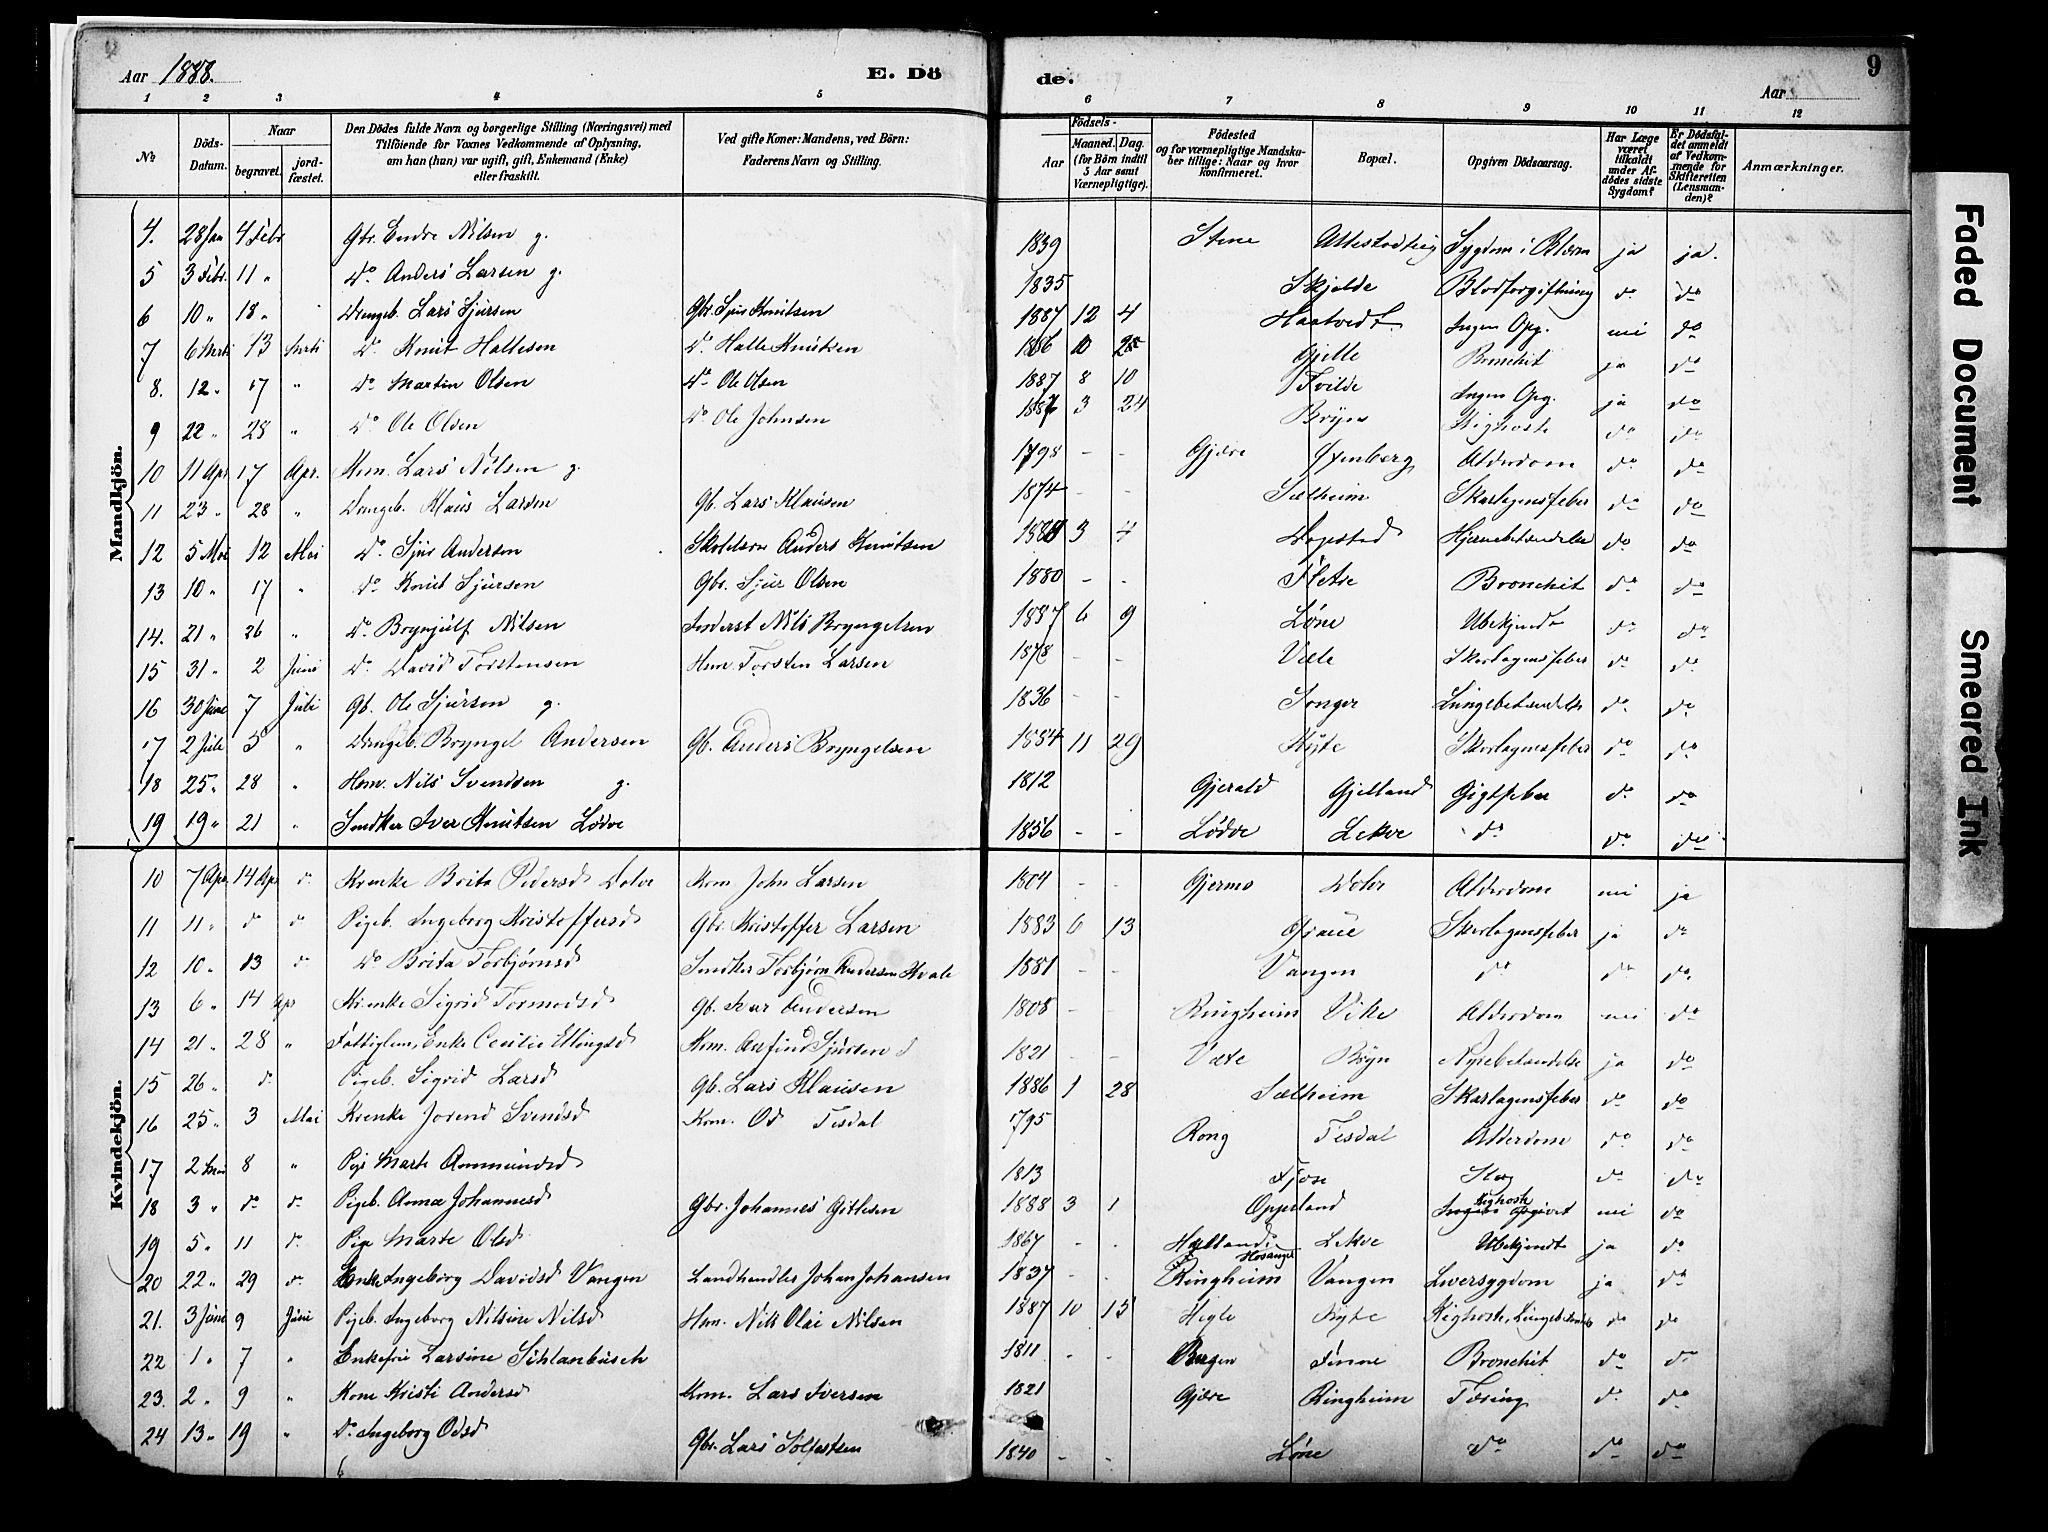 Aar 1888. E. Dö de. Aar 9
1 2 3 4 5 6 7 8 9 10 11 12
No Döds-Datum. Naar begravet. jordfæstet. Den Dödes fulde Navn og borgerlige Stilling (Næringsvei) med Tilföiende for Voxnes Vedkommende af Oplysning, om han (hun) var ugift, gift, Enkemand (Enke) eller fraskilt. Ved gifte Koner: Mandens, ved Börn: Faderens Navn og Stilling. Födsels- Aar Maaned. Dag. (for Börn indtil 5 Aar samt Værnepligtige). Födested og for værnepligtige Mandskaber tillige: Naar og hvor konfirmeret. Bopæl. Opgiven Dödsaarsag. Har Læge været tilkaldt under Afdödes sidste Sygdom? Er Dödsfaldet anmeldt af Vedkommende for Skifteretten (Lensmanden)? Anmærkninger.
Mandkjön.
4. 28 Jan 4 Febr Gbr. Endre Nilsen g. 1839 Stene Sygdom i Blæren ja ja.
5 3 Febr. 11 " Do Anders Larsen g. 1835 Skjelde Blodforgiftning do do
6 10 " 18 " Drengeb. Lars Sjursen Gbr. Sjur Knutsen 1887 12 4 Haatvedt Ingen Opg. nei do
7 6 Marts 13 Marts Do Knut Hallesen Do Halle Knutsen 1886 10 25 Gjelle Bronchit ja do
8. 12 " 17 " Do Martin Olsen Do Ole Olsen 1887 8 10 Tvilde Ingen Opg. ja do
9 22 " 28 " Do Ole Olsen Do Ole Johnsen 1887 3 24 Bryn Kighoste do do
10 11 Apr 17 Apr. Kem. Lars Nilsen g. 1798 - - Gjære Alderdom do do
11 23 " 28 " Drengeb. Klaus Larsen Gb. Lars Klausen 1874 - - Sælheim Skarlagensfeber do do
12 5 Mai 12 Mai Do Sjur Andersen Anders Knutsen 3 4 Hjernebetændelse do do
13 10 " 17 " Do Knut Sjursen Gbr. Sjur Olsen 1880 - - Fletre Bronchit do do
14. 21 " 26 " Do Brynjulf Nilsen Inderst Nils Bryngelsen 1887 6 9 Løne Ubekjendt do do
15 31 " 2 Juni Do David Torstensen Hem. Torsten Larsen 1878 - - Væte Skarlagensfeber do do
16 30 Juni 7 Juli Gb. Ole Sjursen g. 1836 - - Songer Lungebetændelse do do
17 2 Juli 5 " Drengeb. Bryngel Andersen Gb. Anders Bryngelsen 1884 11 29 Kyte Skarlagensfeber do do
18 25 " 28 " Hem. Nils Svendsen g. 1812 Gjerald Gjelland Gigtfeber do do
19 19 " 21 " Iver Knutsen Lødve 1856 - - Lødve Lekve do do do
Kvindekjön.
10 7 Apr. 14 Apr do Brita Pedersd Dolve Kem John Larsen 1804 - - Gjermo Dolve Alderdom nei ja
11 11 " do do Pigeb. Ingeborg Kristoffersd Gbr. Kristoffer Larsen 1883 6 13 Skarlagensfeber ja do
12 10 " 13 do Do Brita Torbjørnsd Torbjørn Andersen Hvale 1881 - - Vangen do do do.
13 6 " 14 Apr Sigrid Tormodsd Gb. Ivar Andersen 1808 - - Ringheim Vike Alderdom nei do
14 21 " 28 " Fattiglem, Enke Cecilie Ellingsd Kem. Anfind Sjursen 1821 - - Væte Bryn Nyrebetændelse ja do
15 26 " do Pigeb. Sigrid Larsd Gb. Lars Klausen 1886 1 28 Sælheim Skarlagensfeber do do
16 25 " 3 Mai Jorend Svendsd Kem. Od Tesdal 1795 Rong Tesdal Alderdom do do
17 2 Mai 8 " Pige Marte Ammundsd 1813 Fjose Slag do do
18 3 " do do Pigeb. Anna Johannesd Gbr. Johannes Gitlesen 1888 3 1 Oppeland Kighoste nei do
19 5 " 11 do Pige Marte Olsd 1867 - - Lekve Ubekjendt ja do
20 22 " 29 do Enke Ingeborg Davidsd Vangen Landhandler Johan Johansen 1837 - - Hosanger Ringheim Vangen Leversygdom ja do
21. 3 Juni 9 Juni Pigeb. Ingeborg Nilsine Nilsd Hem. Nils Olai Nilsen 1887 10 15 Hegle Kyte Kighoste, do do
22 1 " 7 " Enkefru Larsine Schlanbusch 1811 - - Bergen Finne Bronchit do do
23. 2 " 9 " Kone Kristi Andersd Kem. Lars Iversen 1821 Gjære Ringheim Tæring do do
24 13 " 19 " Do Ingeborg Odsd Gbr. Lars Sølfestsen 1840 - - Løne do do do
Faded Document
Smeared Ink